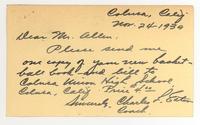 Colusa, Calif.
Nov. 24 - 1930
Dear Mr. Allen.
Please send me
one copy of your new basket-
ball book and bill to
Colusa Union High School
Colusa, Calif. Price
Sincerely. Charles
Coach.